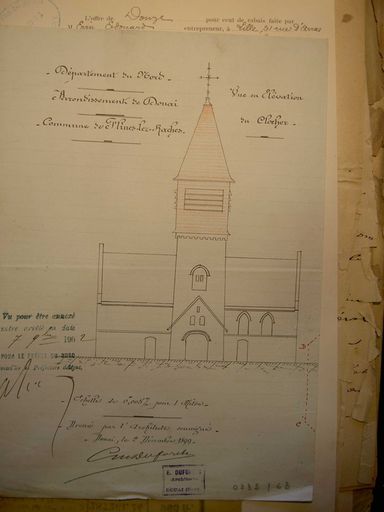 L'offre de Douze pour cent de rabais faite par
entrepreneur, à Lille, 51 rue d'Arras
Département du Nord
Arrondissement de Douai
Commune de Flines-lez-Raches
Vue en Elévation
du Clocher
Vu pour être annexé
à notre arrêté en date
7 9bre 1902
POUR LE PRÉFET DU NORD
D
C
Echelle de 0,005m pour 1 Mètre
Dressé par l'Architecte soussigné
Douai, le 2 Décembre 1899